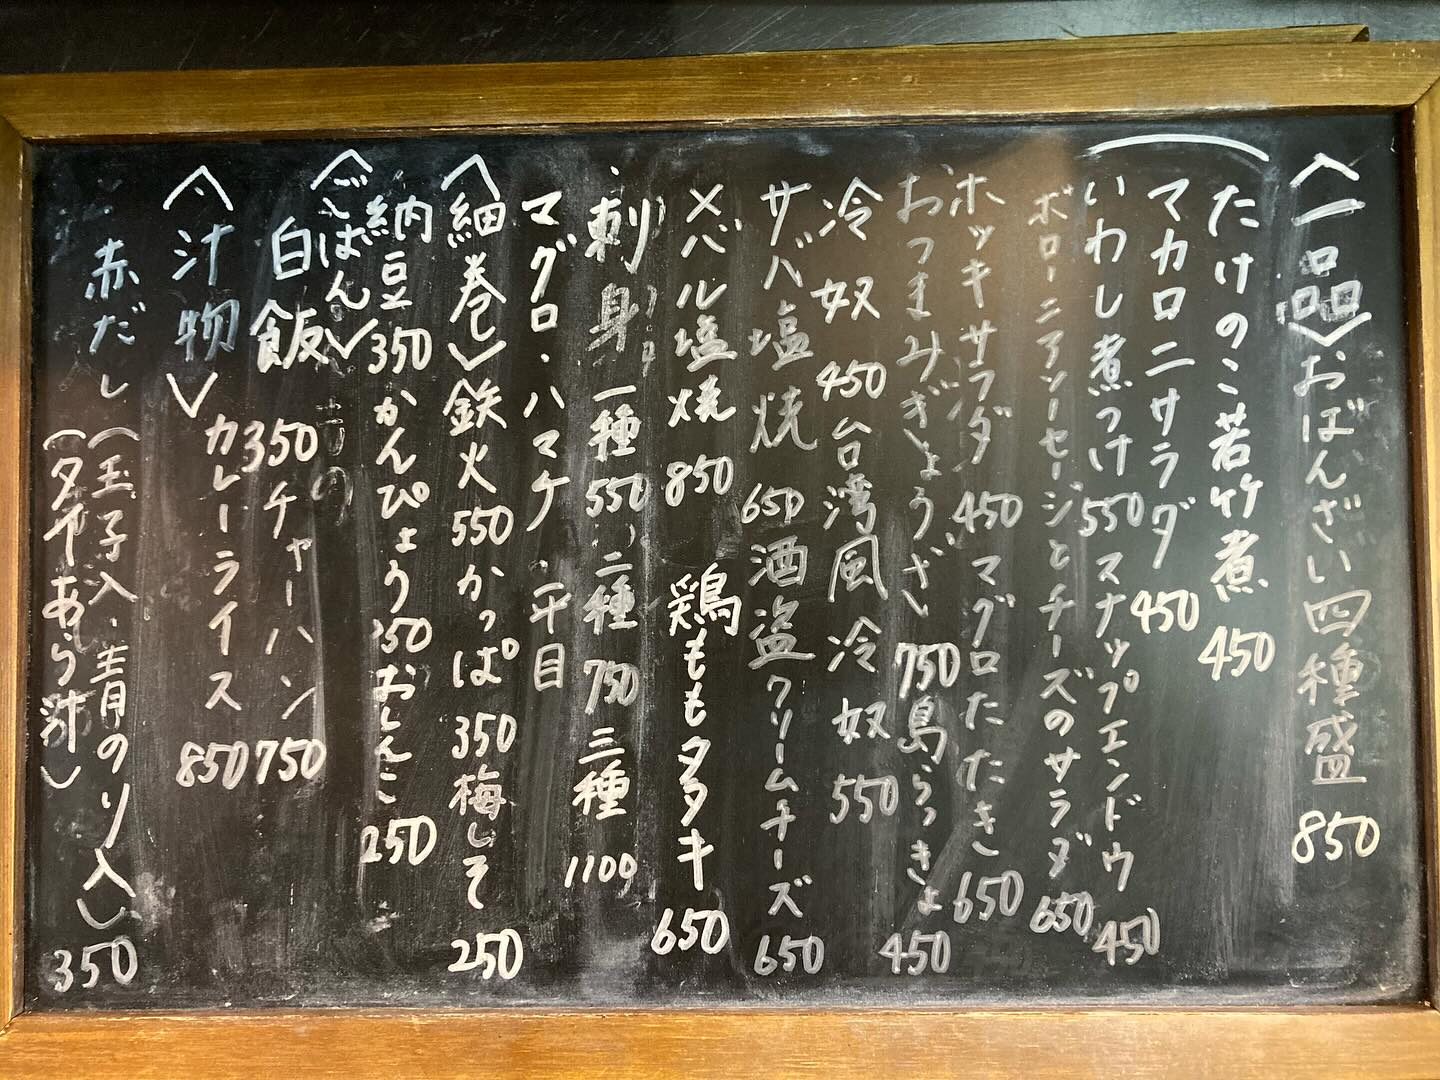 〈一品〉おばんざい四種盛 850
たけのこ若竹煮 450
マカロニサラダ 450
いわし煮つけ 550 スナップエンドウ 450
ボローニアソーセージとチーズのサラダ 650
ホッキサラダ 450 マグロたたき 650
おつまみぎょうざ 750 島らっきょ 450
冷奴 450 台湾風冷奴 550
サバ塩焼 650 酒盗クリームチーズ 650
メバル塩焼 850 鶏ももタタキ 650
刺身 一種 550 二種 750 三種 1100
マグロ・ハマチ 平目
〈細巻〉鉄火 550 かっぱ 350 梅しそ 250
納豆 350 かんぴょう 350 おしんこ 250
〈ごはん〉
白飯 350 チャーハン 750
カレーライス 850
〈汁物〉
赤だし(玉子入・青のり入) 350
(タイあら汁)